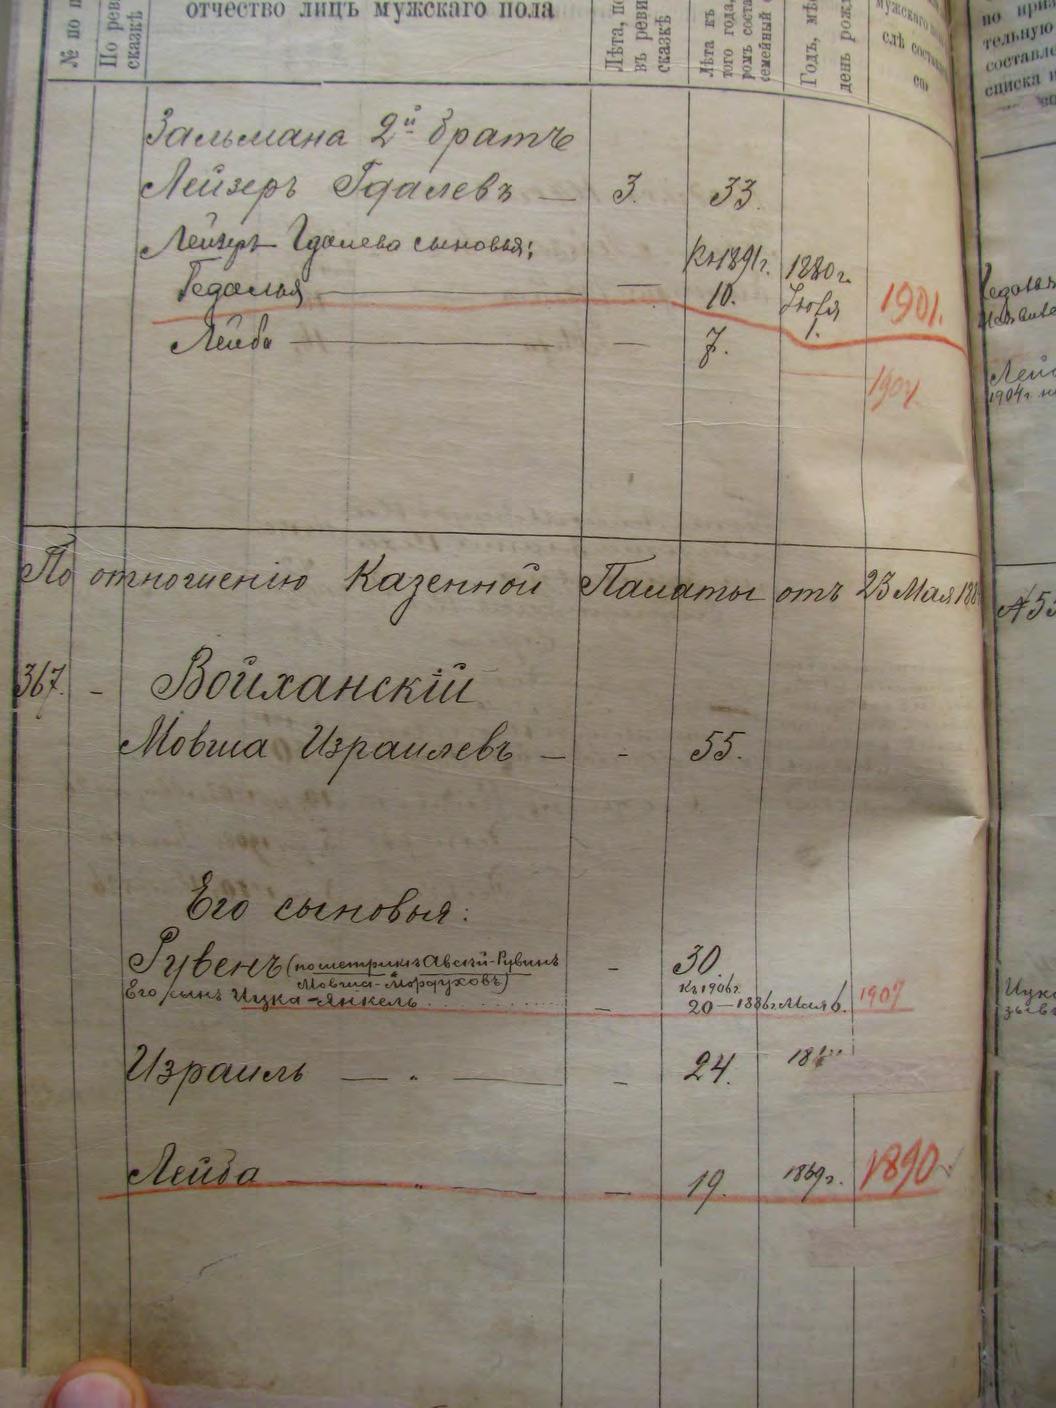 № по
По рев
сказкѣ
отчество лицъ мужского пола
Лѣта, по
въ реви
сказкѣ
Лѣта къ
того года,
ромъ соста
семейный с
Годъ, мѣ
день рож
мужского
слѣ состав
по приз
тельную
составле
списка и
Зальмана 2й братъ
Лейзеръ Гдалевъ — 3. 33.
Лейзеръ Гдалева сыновья:
Гедалья — — 10. 1880 г. Іюля 1. 1901.
къ 1891 г.
Лейба — — 7. 1904
Лей
1904 г.
По отношенію Казенной Палаты отъ 23 Мая 188
№ 53
367. - Войханскій
Мовша Израилевъ — - 55.
Его сыновья:
Рувенъ (по метрикѣ Авсѣй-Рувинъ - 30
Мовша-Мордуховъ)
къ 1906 г.
Его сынъ Ицка-Янкель - 20 — 1886 г. Мая 6. 1907
Израиль — " — - 24. 18
Лейба — " — — 19. 1869 г. 1890